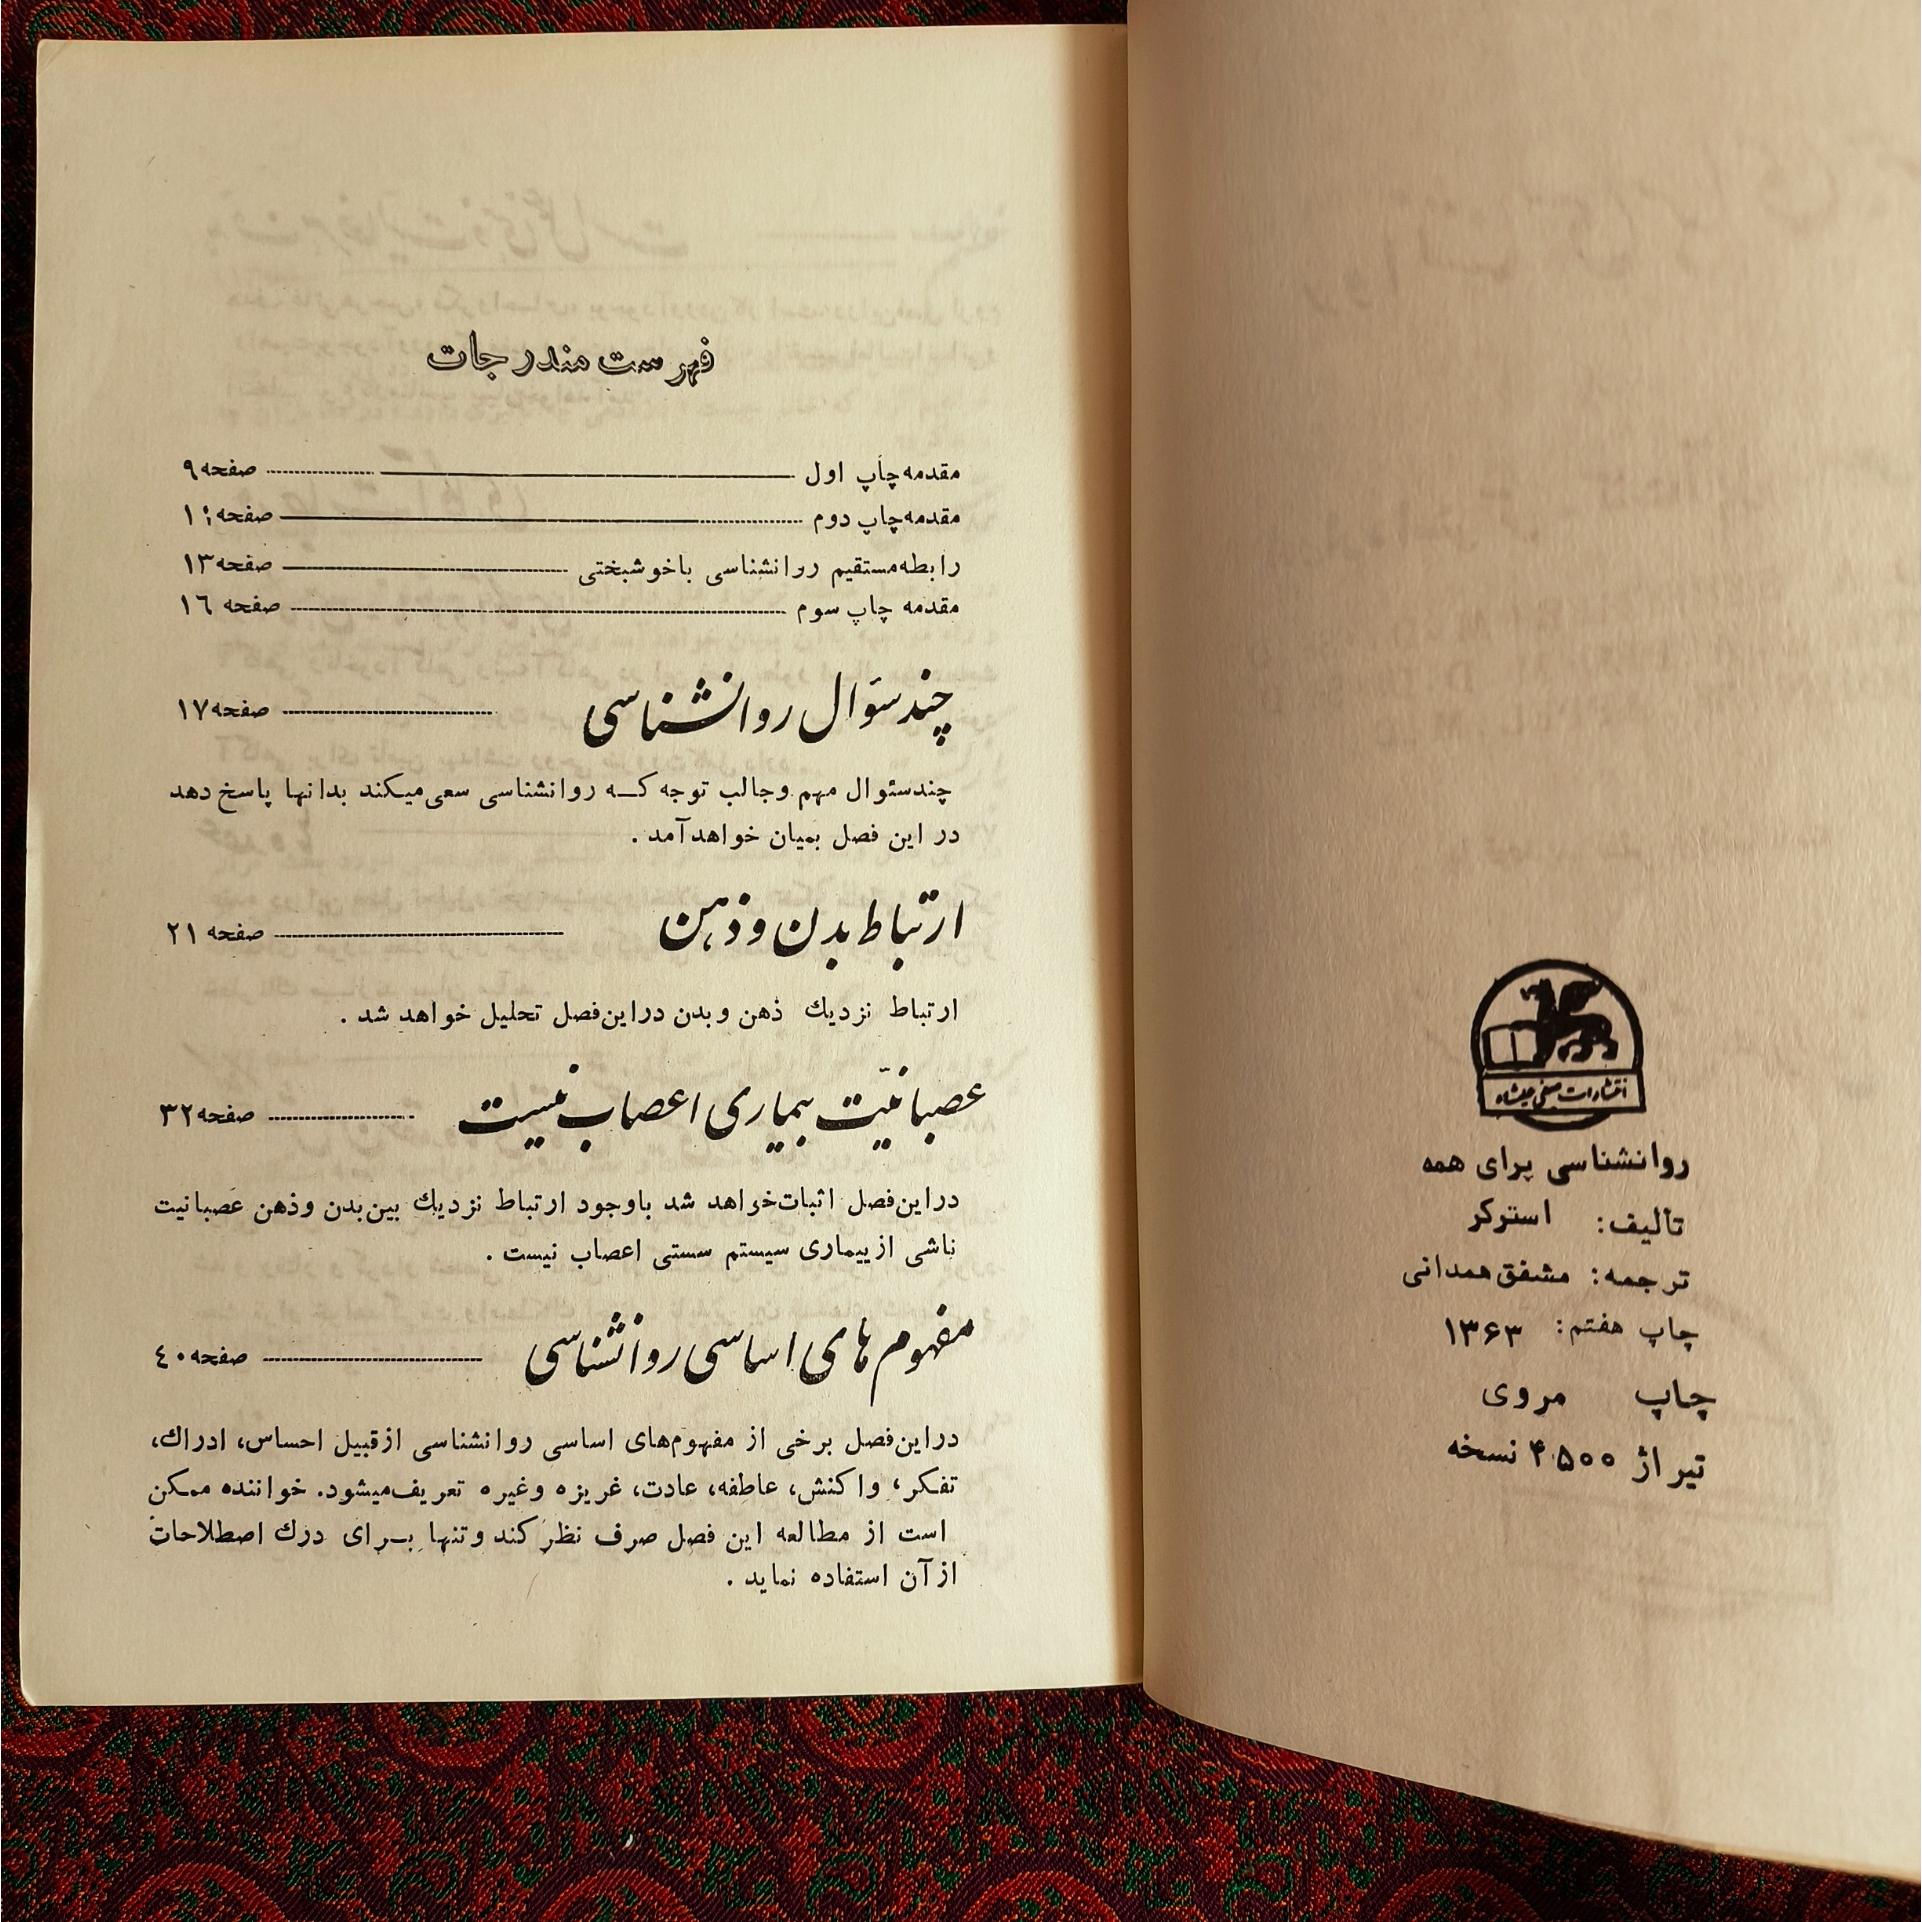 انتشارات صفی علیشاه
روانشناسی برای همه
تألیف: استرکر
ترجمه: مشفق همدانی
چاپ هفتم: ۱۳۶۳
چاپ مروی
تیراژ ۴۵۰۰ نسخه
فهرست مندرجات
مقدمه چاپ اول صفحه ۹
مقدمه چاپ دوم صفحه ۱۱
رابطه مستقیم روانشناسی باخوشبختی صفحه ۱۳
مقدمه چاپ سوم صفحه ۱٦
چند سؤال روانشناسی صفحه ۱۷
چندسئوال مهم وجالب توجه که روانشناسی سعی میکند بدانها پاسخ دهد
در این فصل بمیان خواهد آمد .
ارتباط بدن و ذهن صفحه ۲۱
ارتباط نزدیك ذهن و بدن دراین فصل تحلیل خواهد شد .
عصبانیّت بیماری اعصاب نیست صفحه ۳۲
دراین فصل اثبات خواهد شد باوجود ارتباط نزدیك بین بدن وذهن عصبانیت
ناشی از بیماری سیستم سستی اعصاب نیست .
مفهوم های اساسی روانشناسی صفحه ٤۰
دراین فصل برخی از مفهوم‌های اساسی روانشناسی ازقبیل احساس، ادراك،
تفکر، واکنش، عاطفه، عادت، غریزه وغیره تعریف میشود. خواننده ممکن
است از مطالعه این فصل صرف نظر کند وتنها برای درك اصطلاحات
از آن استفاده نماید .